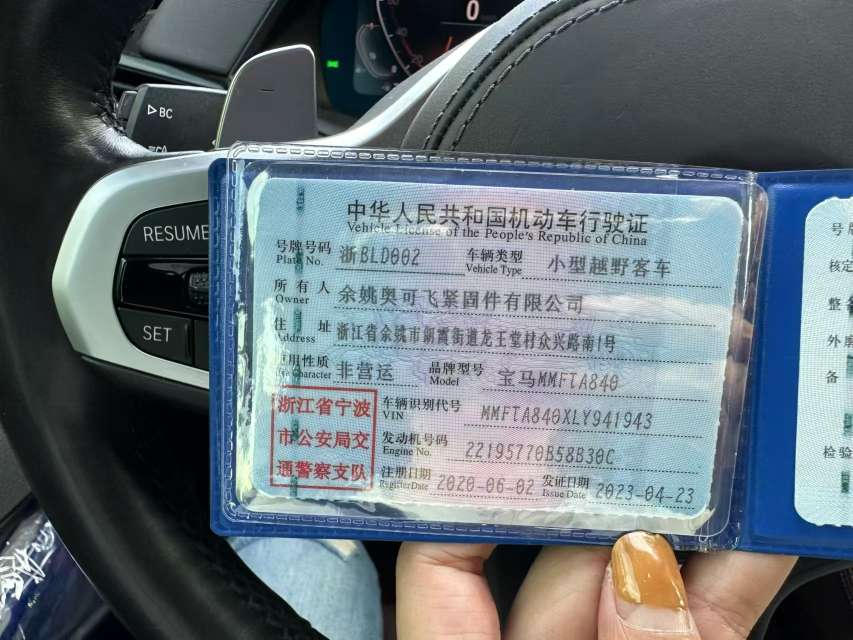 0
BC
RESUME
SET
中华人民共和国机动车行驶证
Vehicle License of the People's Republic of China
号牌号码 浙BLD002 车辆类型 小型越野客车
Plate No. Vehicle Type
所有人 余姚奥可飞紧固件有限公司
Owner
住址 浙江省余姚市朗霞街道龙王堂村众兴路南1号
Address
用性质 非营运 品牌型号 宝马MMFTA840
Character Model
浙江省宁波
市公安局交
通警察支队
车辆识别代号 MMFTA840XLY941943
VIN
发动机号码 22195770B58B30C
Engine No.
注册日期 2020-06-02 发证日期 2023-04-23
Register Date Issue Date
号
核定
整
外
备
检验